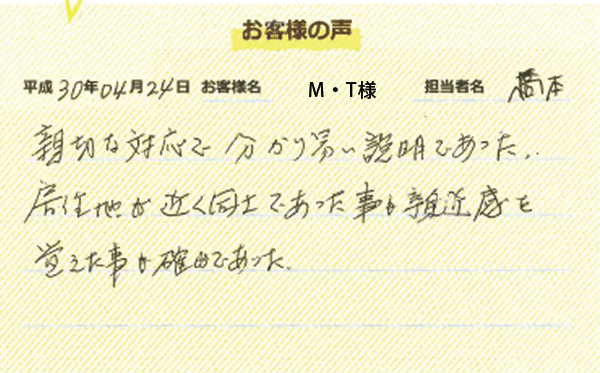 お客様の声
平成30年04月24日 お客様名 M・T様 担当者名 橋本
親切な対応で 分かり易い説明であった。
居住地が近く同士であった事も親近感を
覚えた事も確かであった。